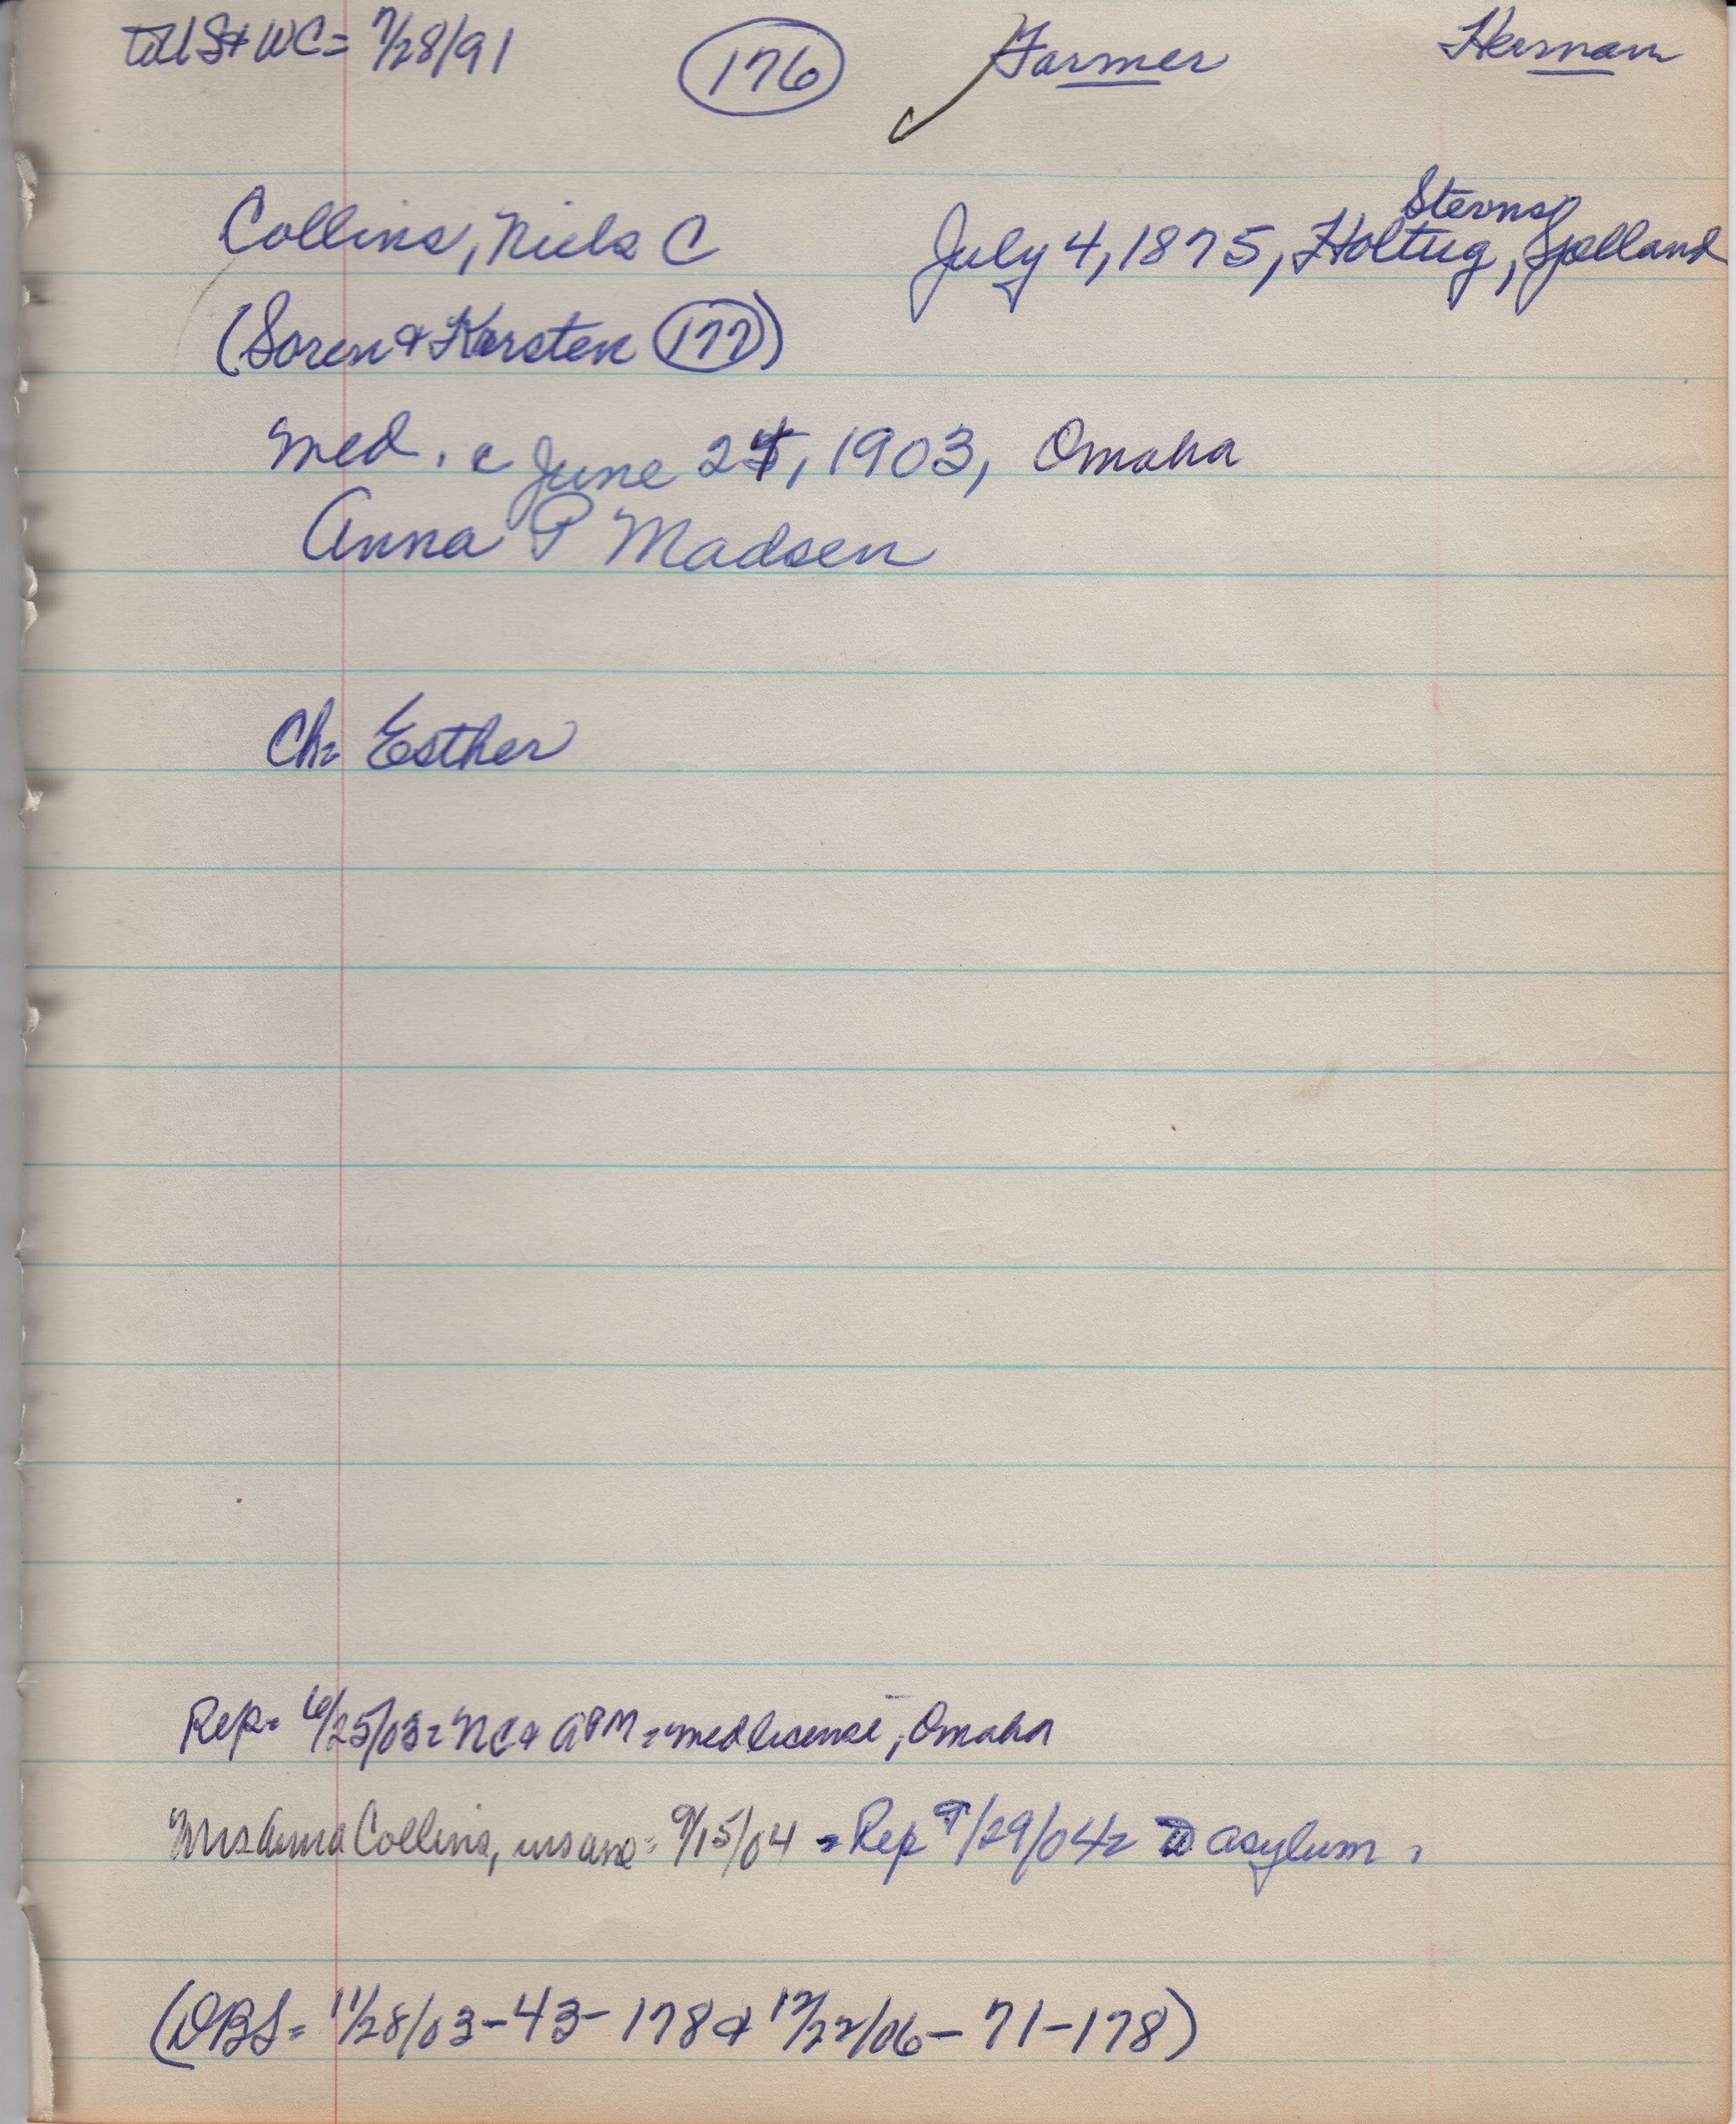 to US & WC = 7/28/91 (176) Farmer Herman
Stevns
Collins, Niels C July 4, 1875, Holtug, Sjælland
(Soren & Karsten (177))
med. c June 24, 1903, Omaha
Anna P Madsen
Ch= Esther
Rep= 6/25/03= NC & APM = med license, Omaha
Mrs Anna Collins, insane= 9/15/04 = Rep 9/29/04= to asylum.
(DBS= 11/28/03-43-178 & 12/22/06-71-178)